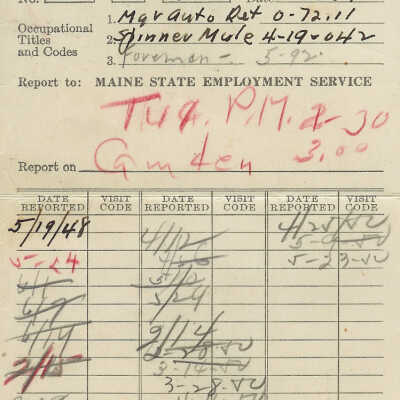 No.
Occupational Titles and Codes
1. Mgr Auto Ret 0-72.11
2. Spinner Mule 4-19-042
3. Foreman - 5-92.
Report to: MAINE STATE EMPLOYMENT SERVICE
Tue. P.M. 2-30
3.00
Report on Camden
DATE REPORTED VISIT CODE DATE REPORTED VISIT CODE DATE REPORTED VISIT CODE
5/19/48 4/12 4/25/50
5-24 5-9-50
5/12 5-23-50
6/9 5/29
6/19 2/14
2/15 2-28-50
3-14-50
3-28-50